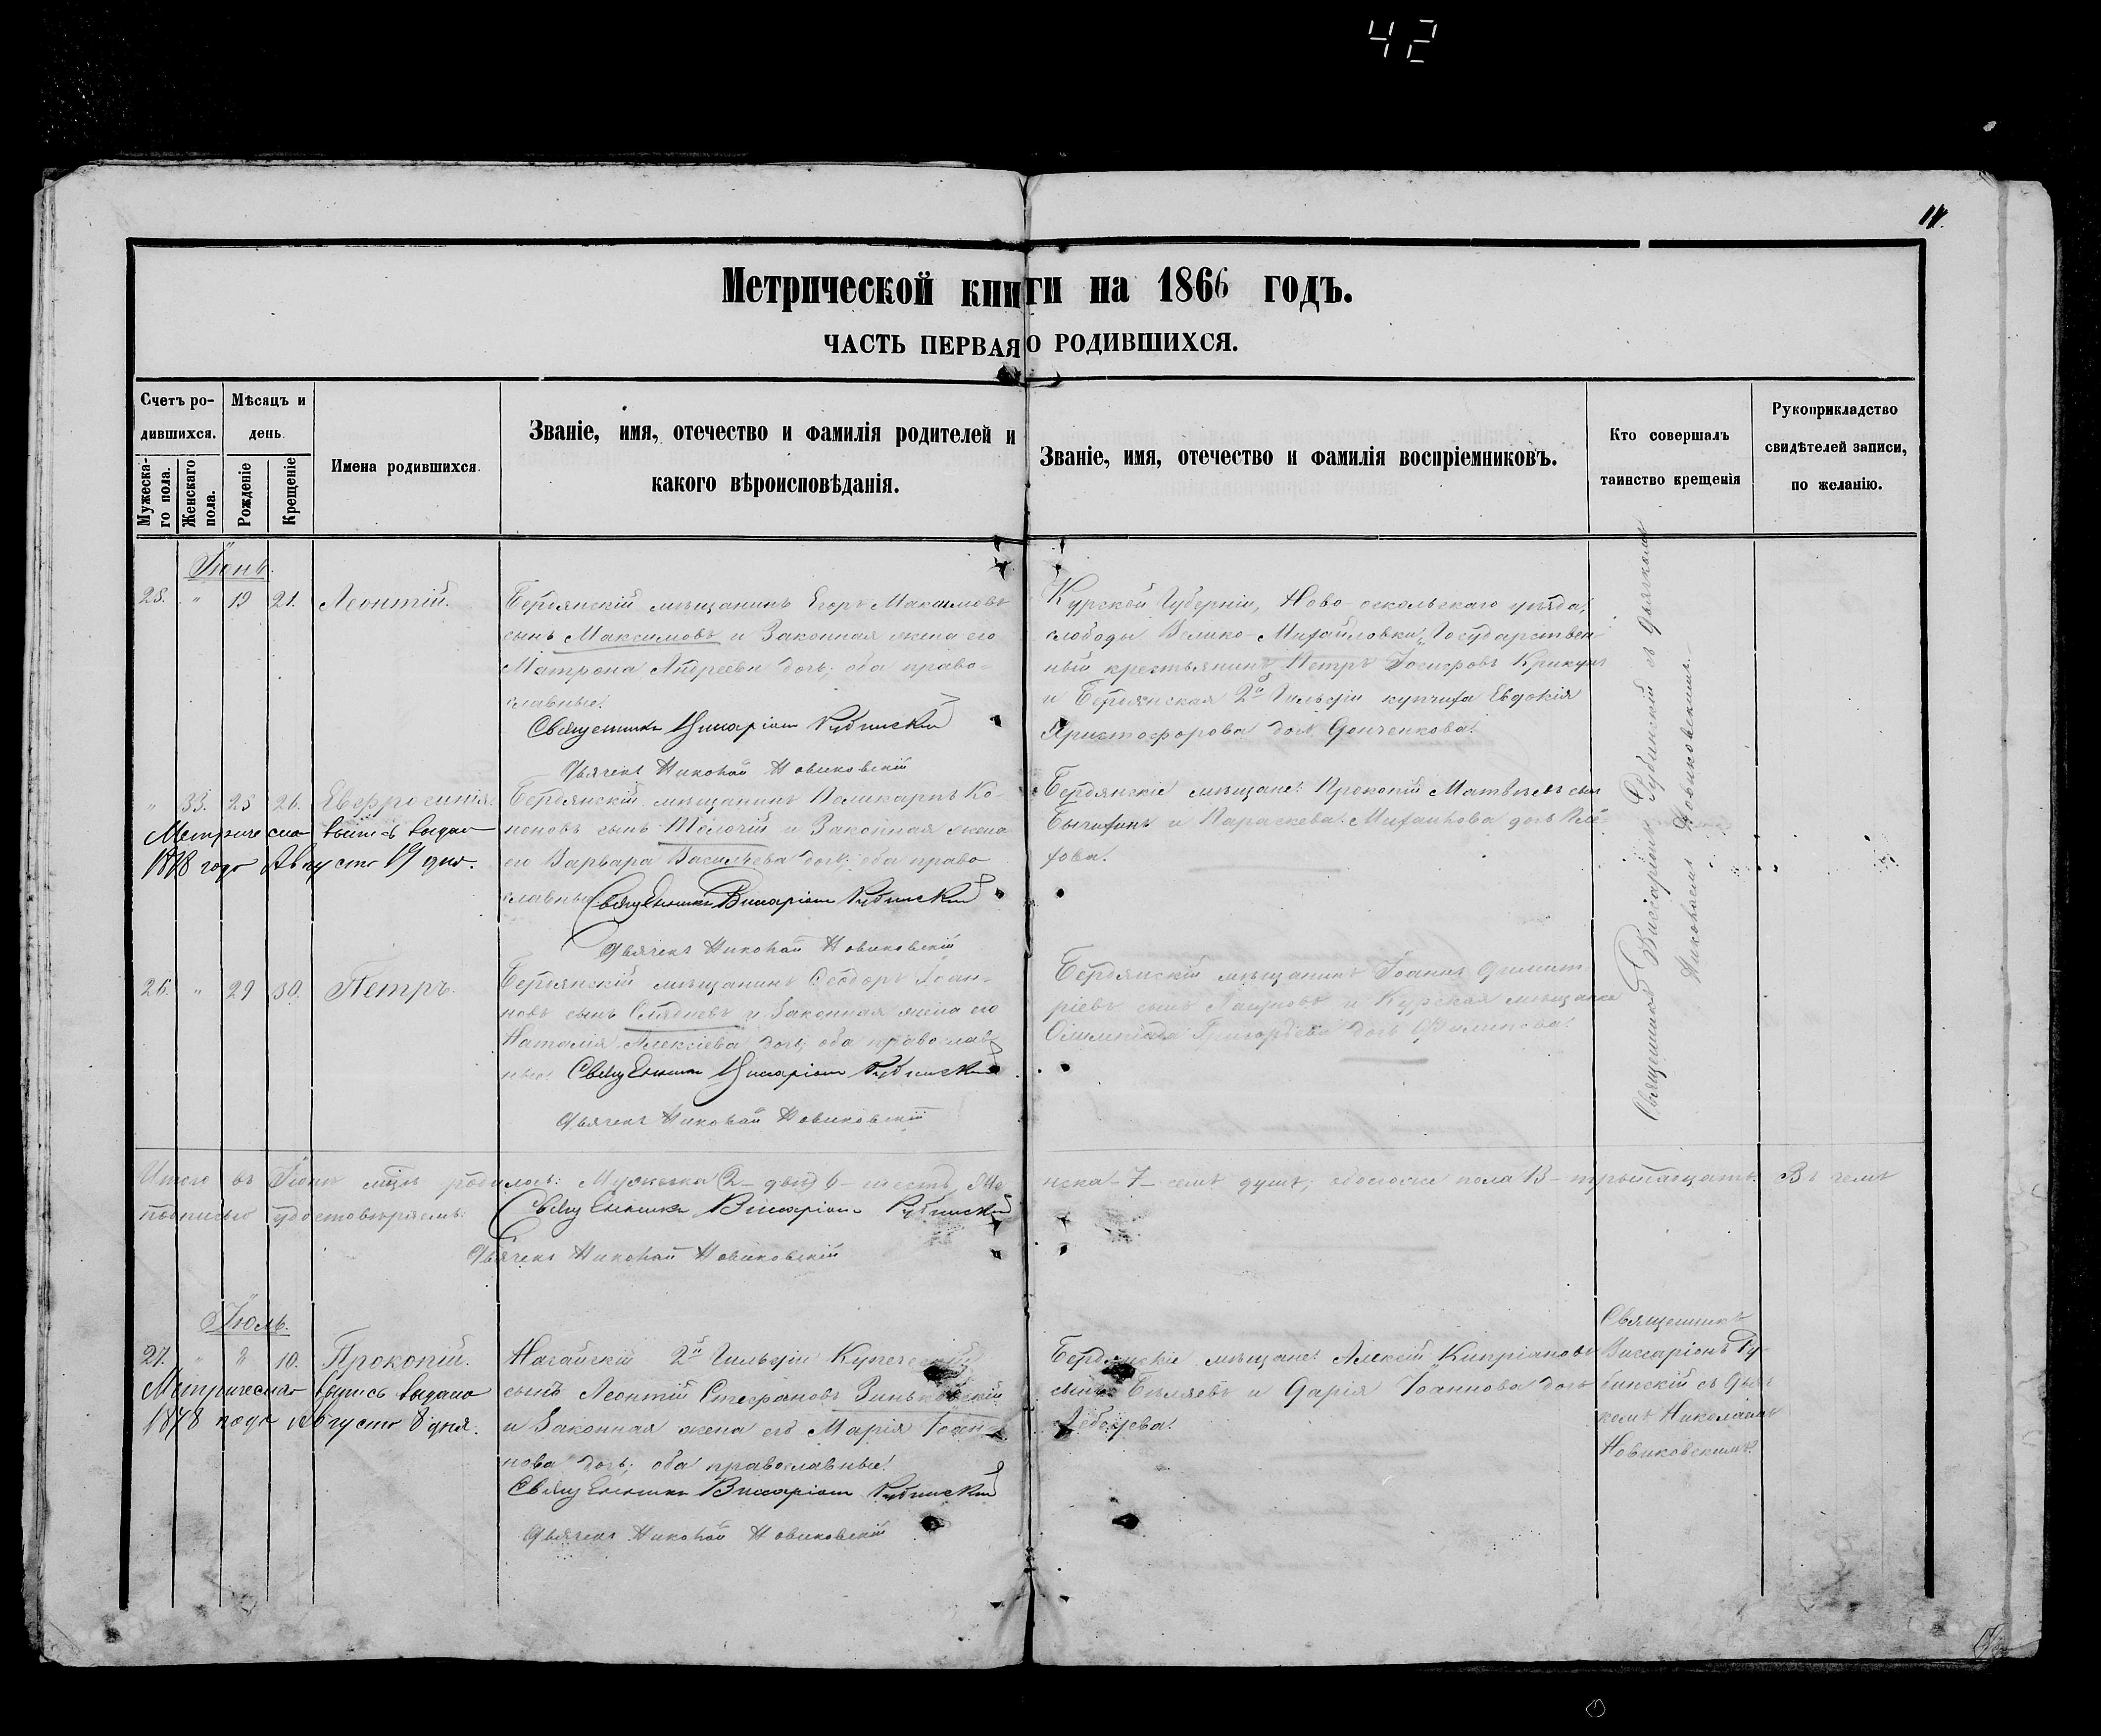 42
Метрической книги на 1866 годъ.
ЧАСТЬ ПЕРВАЯ О РОДИВШИХСЯ.
Счетъ ро-
дившихся.
Мужеска-
го пола.
Женскаго
пола.
Мѣсяцъ и
день.
Рожденіе
Крещеніе
Имена родившихся.
Званіе, имя, отечество и фамилія родителей и
какого вѣроисповѣданія.
Званіе, имя, отечество и фамилія воспріемниковъ.
Кто совершалъ
таинство крещенія
Рукоприкладство
свидѣтелей записи,
по желанію.
Іюнь.
25. " 19 21. Леонтій.
Бердянскій мѣщанинъ Егоръ Максимовъ
сынъ Максимовъ и Законная жена его
Матрона Андреева дочь; оба право-
славные.
Священникъ Виссаріонъ Рубинскій
Дьячекъ Николай Новиковскій
Курской Губерніи, Ново-оскольскаго уѣзда,
слободы Велико-Михайловки, Государствен-
ный крестьянинъ Петръ Іосифовъ Крикунъ
и Бердянская 2й Гильдіи купчиха Евдокія
Христофорова дочь Донченкова.
Священникъ Виссаріонъ Рубинскій съ дьячкомъ
Николаемъ Новиковскимъ.
" 33. 25 26. Евфросинія.
Метрическая выпись выдана
1878 года Августа 19 дня.
Бердянскій мѣщанинъ Поликарпъ Ко-
ноновъ сынъ Толочій и Законная жена
его Варвара Васильева дочь; оба право
славные Священникъ Виссаріонъ Рубинскій
Дьячекъ Николай Новиковскій
Бердянскіе мѣщане: Прокопій Матвѣевъ сынъ
Бычихинъ и Параскева Михайлова дочь
26. " 29 30. Петръ.
Бердянскій мѣщанинъ Ѳеодоръ Іоан-
новъ сынъ и Законная жена его
Наталія Алексіева дочь; оба православ-
ные. Священникъ Виссаріонъ Рубинскій
Дьячекъ Николай Новиковскій
Бердянскій мѣщанинъ Іоаннъ Димит-
ріевъ сынъ и Курская мѣщанка
Олимпіада Григорьева дочь Филипова.
Итого въ Іюнѣ мѣсяцѣ родилось: Мужеска 6 шесть, Же
нска 7 семь душъ; обоего пола 13 тринадцать. Въ чемъ
подписью удостовѣряемъ:
Священникъ Виссаріонъ Рубинскій
Дьячекъ Николай Новиковскій
Іюль.
27. " 8 10. Прокопій.
Метрическая выпись выдана
1878 года Августа 8 дня.
Ногайскій 2й Гильдіи Купеческій
сынъ Леонтій Стефановъ Зиньковскій
и Законная жена его Марія Іоан-
нова дочь; оба православные.
Священникъ Виссаріонъ Рубинскій
Дьячекъ Николай Новиковскій
Бердянскіе мѣщане: Алексій Кипріановъ
сынъ Бѣляевъ и Дарія Іоаннова дочь
Священникъ
Виссаріонъ Ру-
бинскій съ Дья-
комъ Николаемъ
Новиковскимъ.